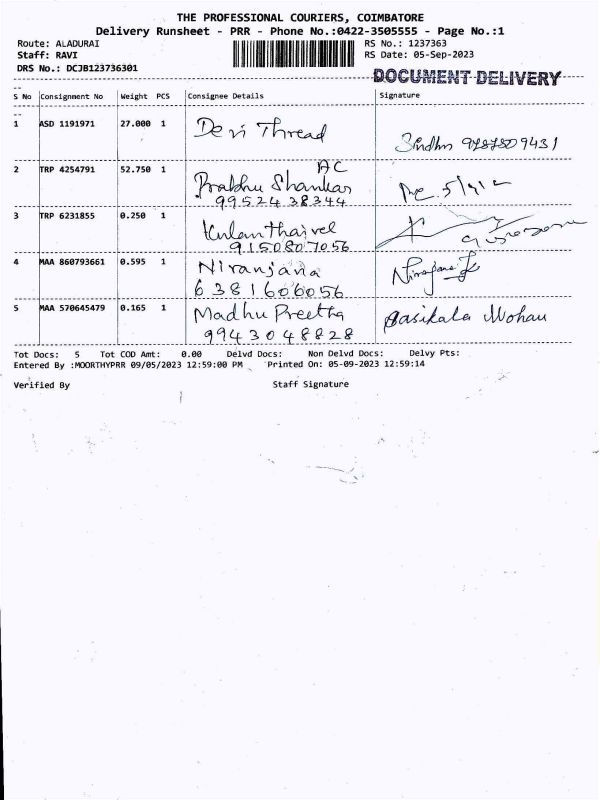 THE PROFESSIONAL COURIERS, COIMBATORE
Delivery Runsheet - PRR - Phone No.:0422-3505555 - Page No.:1
Route: ALADURAI RS No.: 1237363
Staff: RAVI RS Date: 05-Sep-2023
DRS No.: DCJB123736301
DOCUMENT DELIVERY
S No Consignment No Weight PCS Consignee Details Signature
1 ASD 1191971 27.000 1 Devi Thread Sindhu
2 TRP 4254791 52.750 1 Prabhu Shankar AC
9952438344
3 TRP 6231855 0.250 1 Kulanthaivel
9150807056
4 MAA 860793661 0.595 1 Niranjana
6381606056
5 MAA 570645479 0.165 1 Madhu Preetha Sasikala Mohan
9943048828
Tot Docs: 5 Tot COD Amt: 0.00 Delvd Docs: Non Delvd Docs: Delvy Pts:
Entered By :MOORTHYPRR 09/05/2023 12:59:00 PM Printed On: 05-09-2023 12:59:14
Verified By Staff Signature